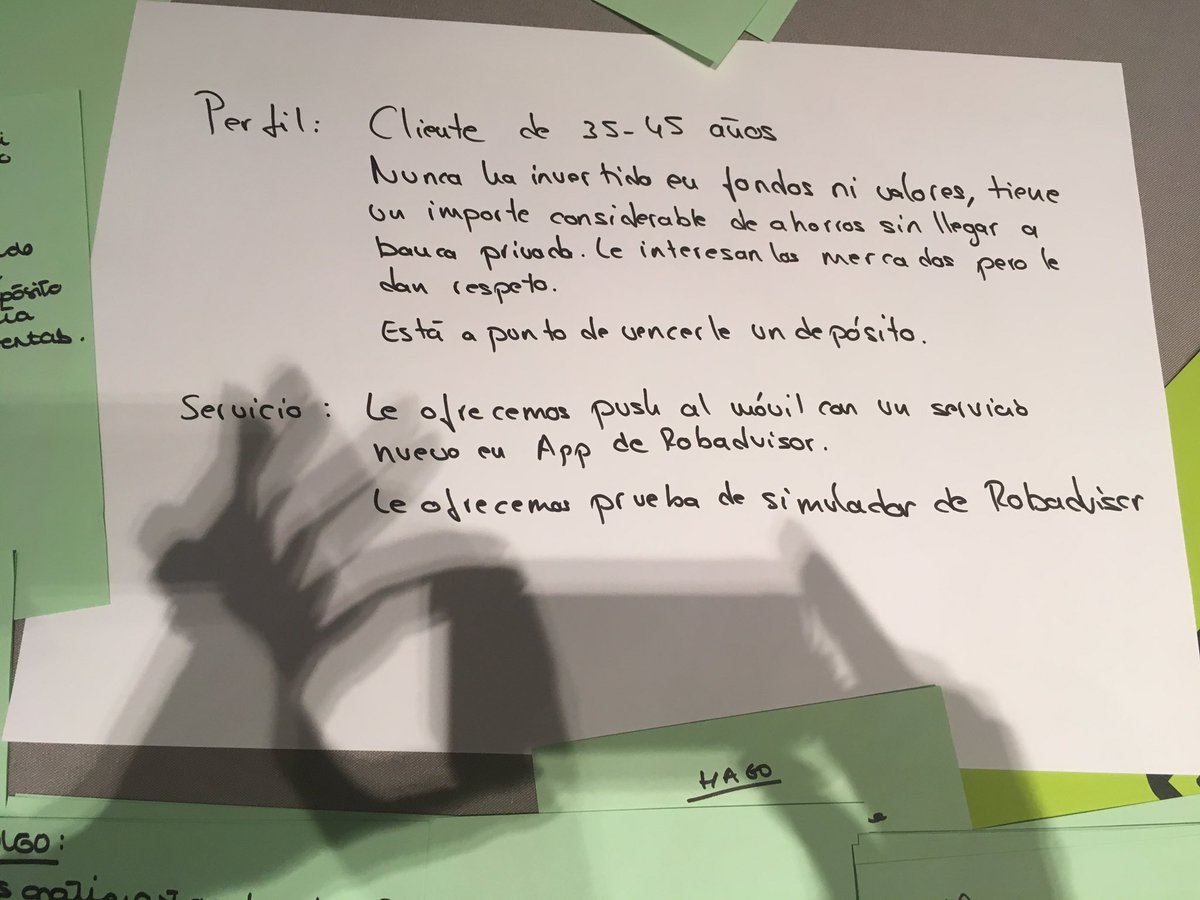 Perfil: Cliente de 35-45 años
Nunca ha invertido en fondos ni valores, tiene
un importe considerable de ahorros sin llegar a
banca privada. Le interesan los mercados pero le
dan respeto.
Está a punto de vencerle un depósito.
Servicio: Le ofrecemos push al móvil con un servicio
nuevo en App de Robadvisor.
Le ofrecemos prueba de simulador de Robadvisor
pósito
HAGO